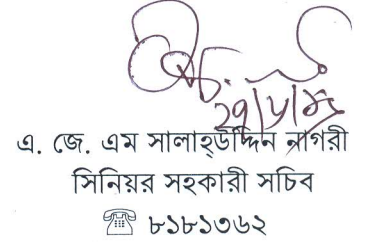 এ. জে. এম সালাহ্উদ্দিন নাগরী
সিনিয়র সহকারী সচিব
☏ ৮১৮১৩৬২